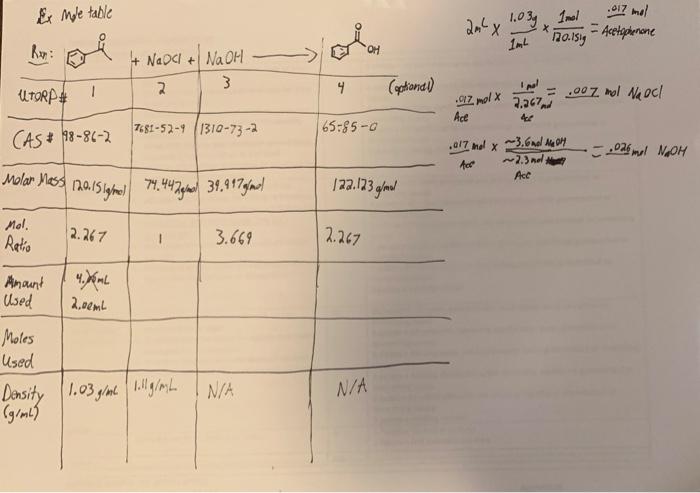 Ex Mole table
Rxn: + NaOCl + NaOH → OH
UTORP# 1 2 3 4 (optional)
CAS# 98-86-2 7681-52-9 1310-73-2 65-85-0
Molar Mass 120.151g/mol 74.442g/mol 39.997g/mol 122.123g/mol
Mol. Ratio 2.267 1 3.669 2.267
Amount Used 2.00mL
Moles Used
Density (g/mL) 1.03 g/mL 1.11g/mL N/A N/A
2mL × 1.03g / 1mL × 1mol / 120.151g = .017 mol Acetophenone
.017 mol Ace × 1 mol / 2.267 mol Ace = .007 mol NaOCl
.017 mol Ace × ~3.6 mol NaOH / ~2.3 mol Ace = .026 mol NaOH